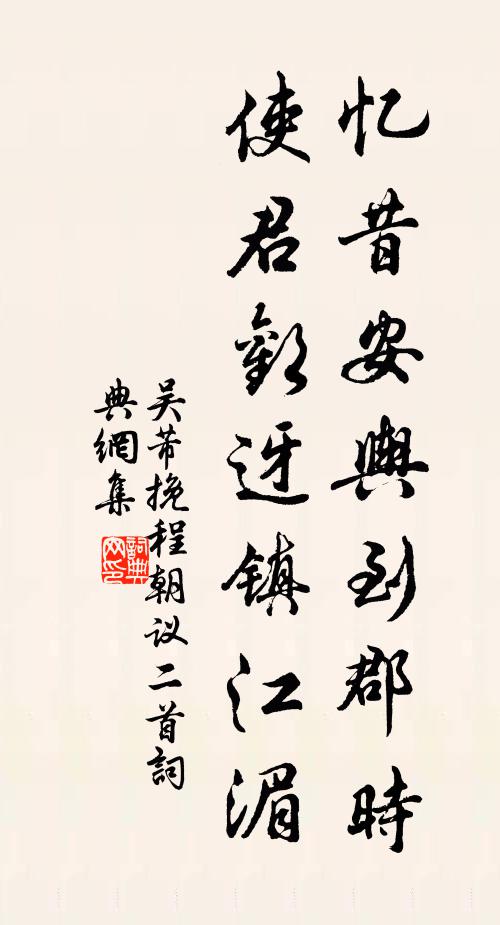 忆昔安輿到郡時
使君歡迓镇江湄
吴芾挽程朝议二首詞
典網集
詞典网印